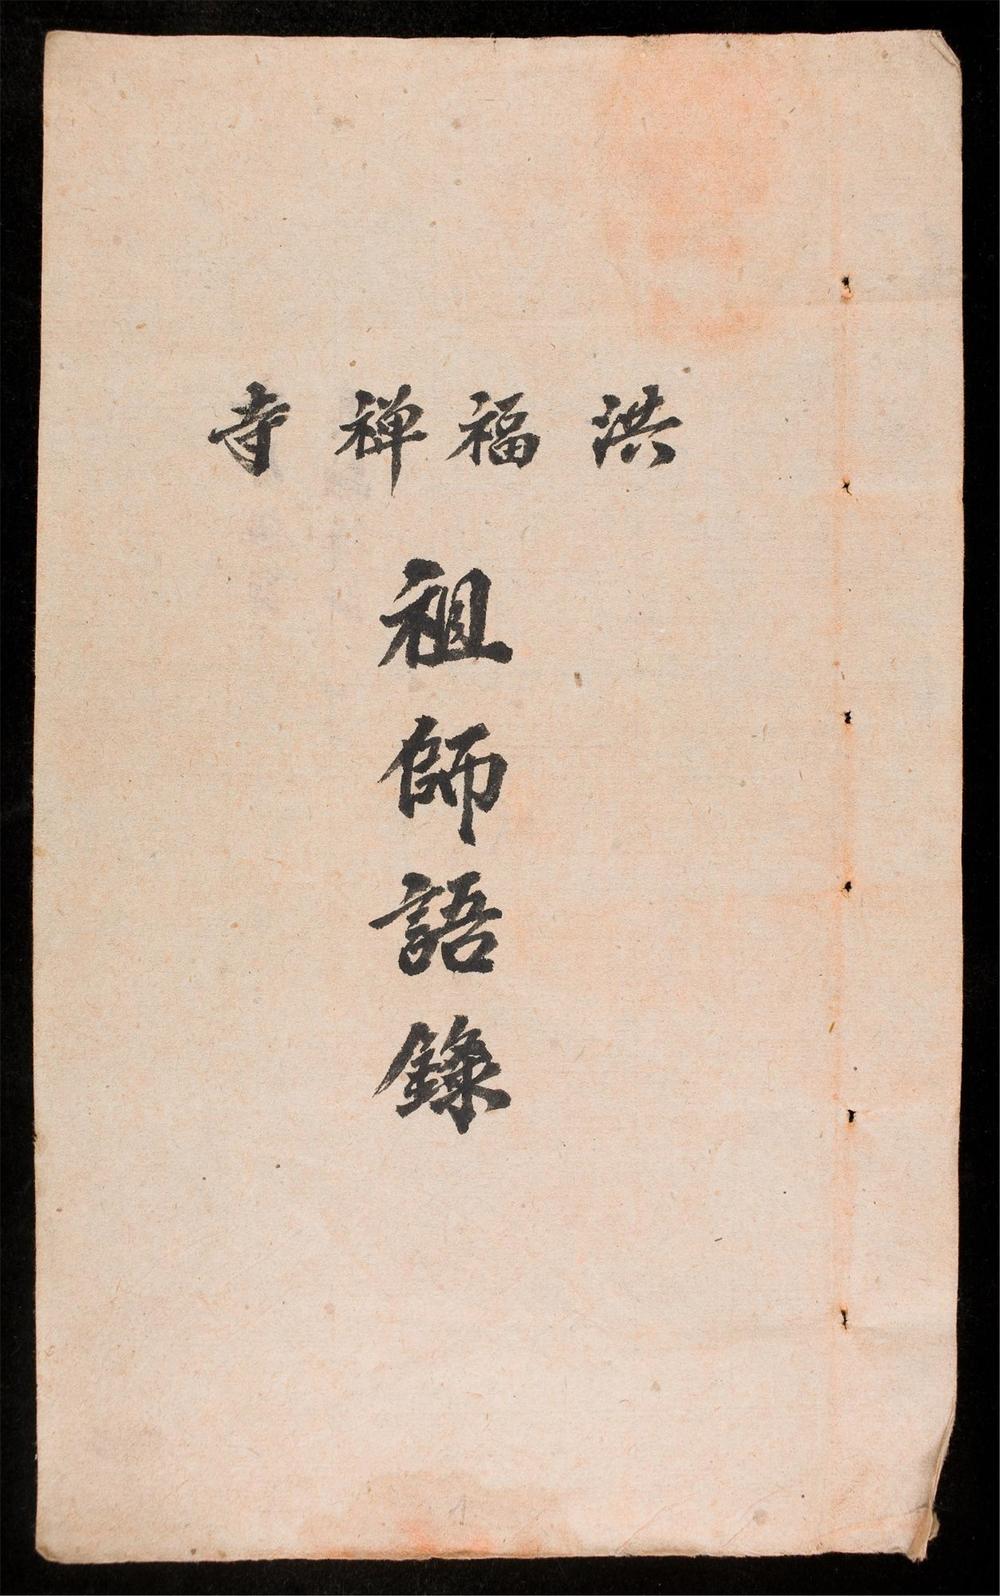 洪福禅寺
祖師語錄